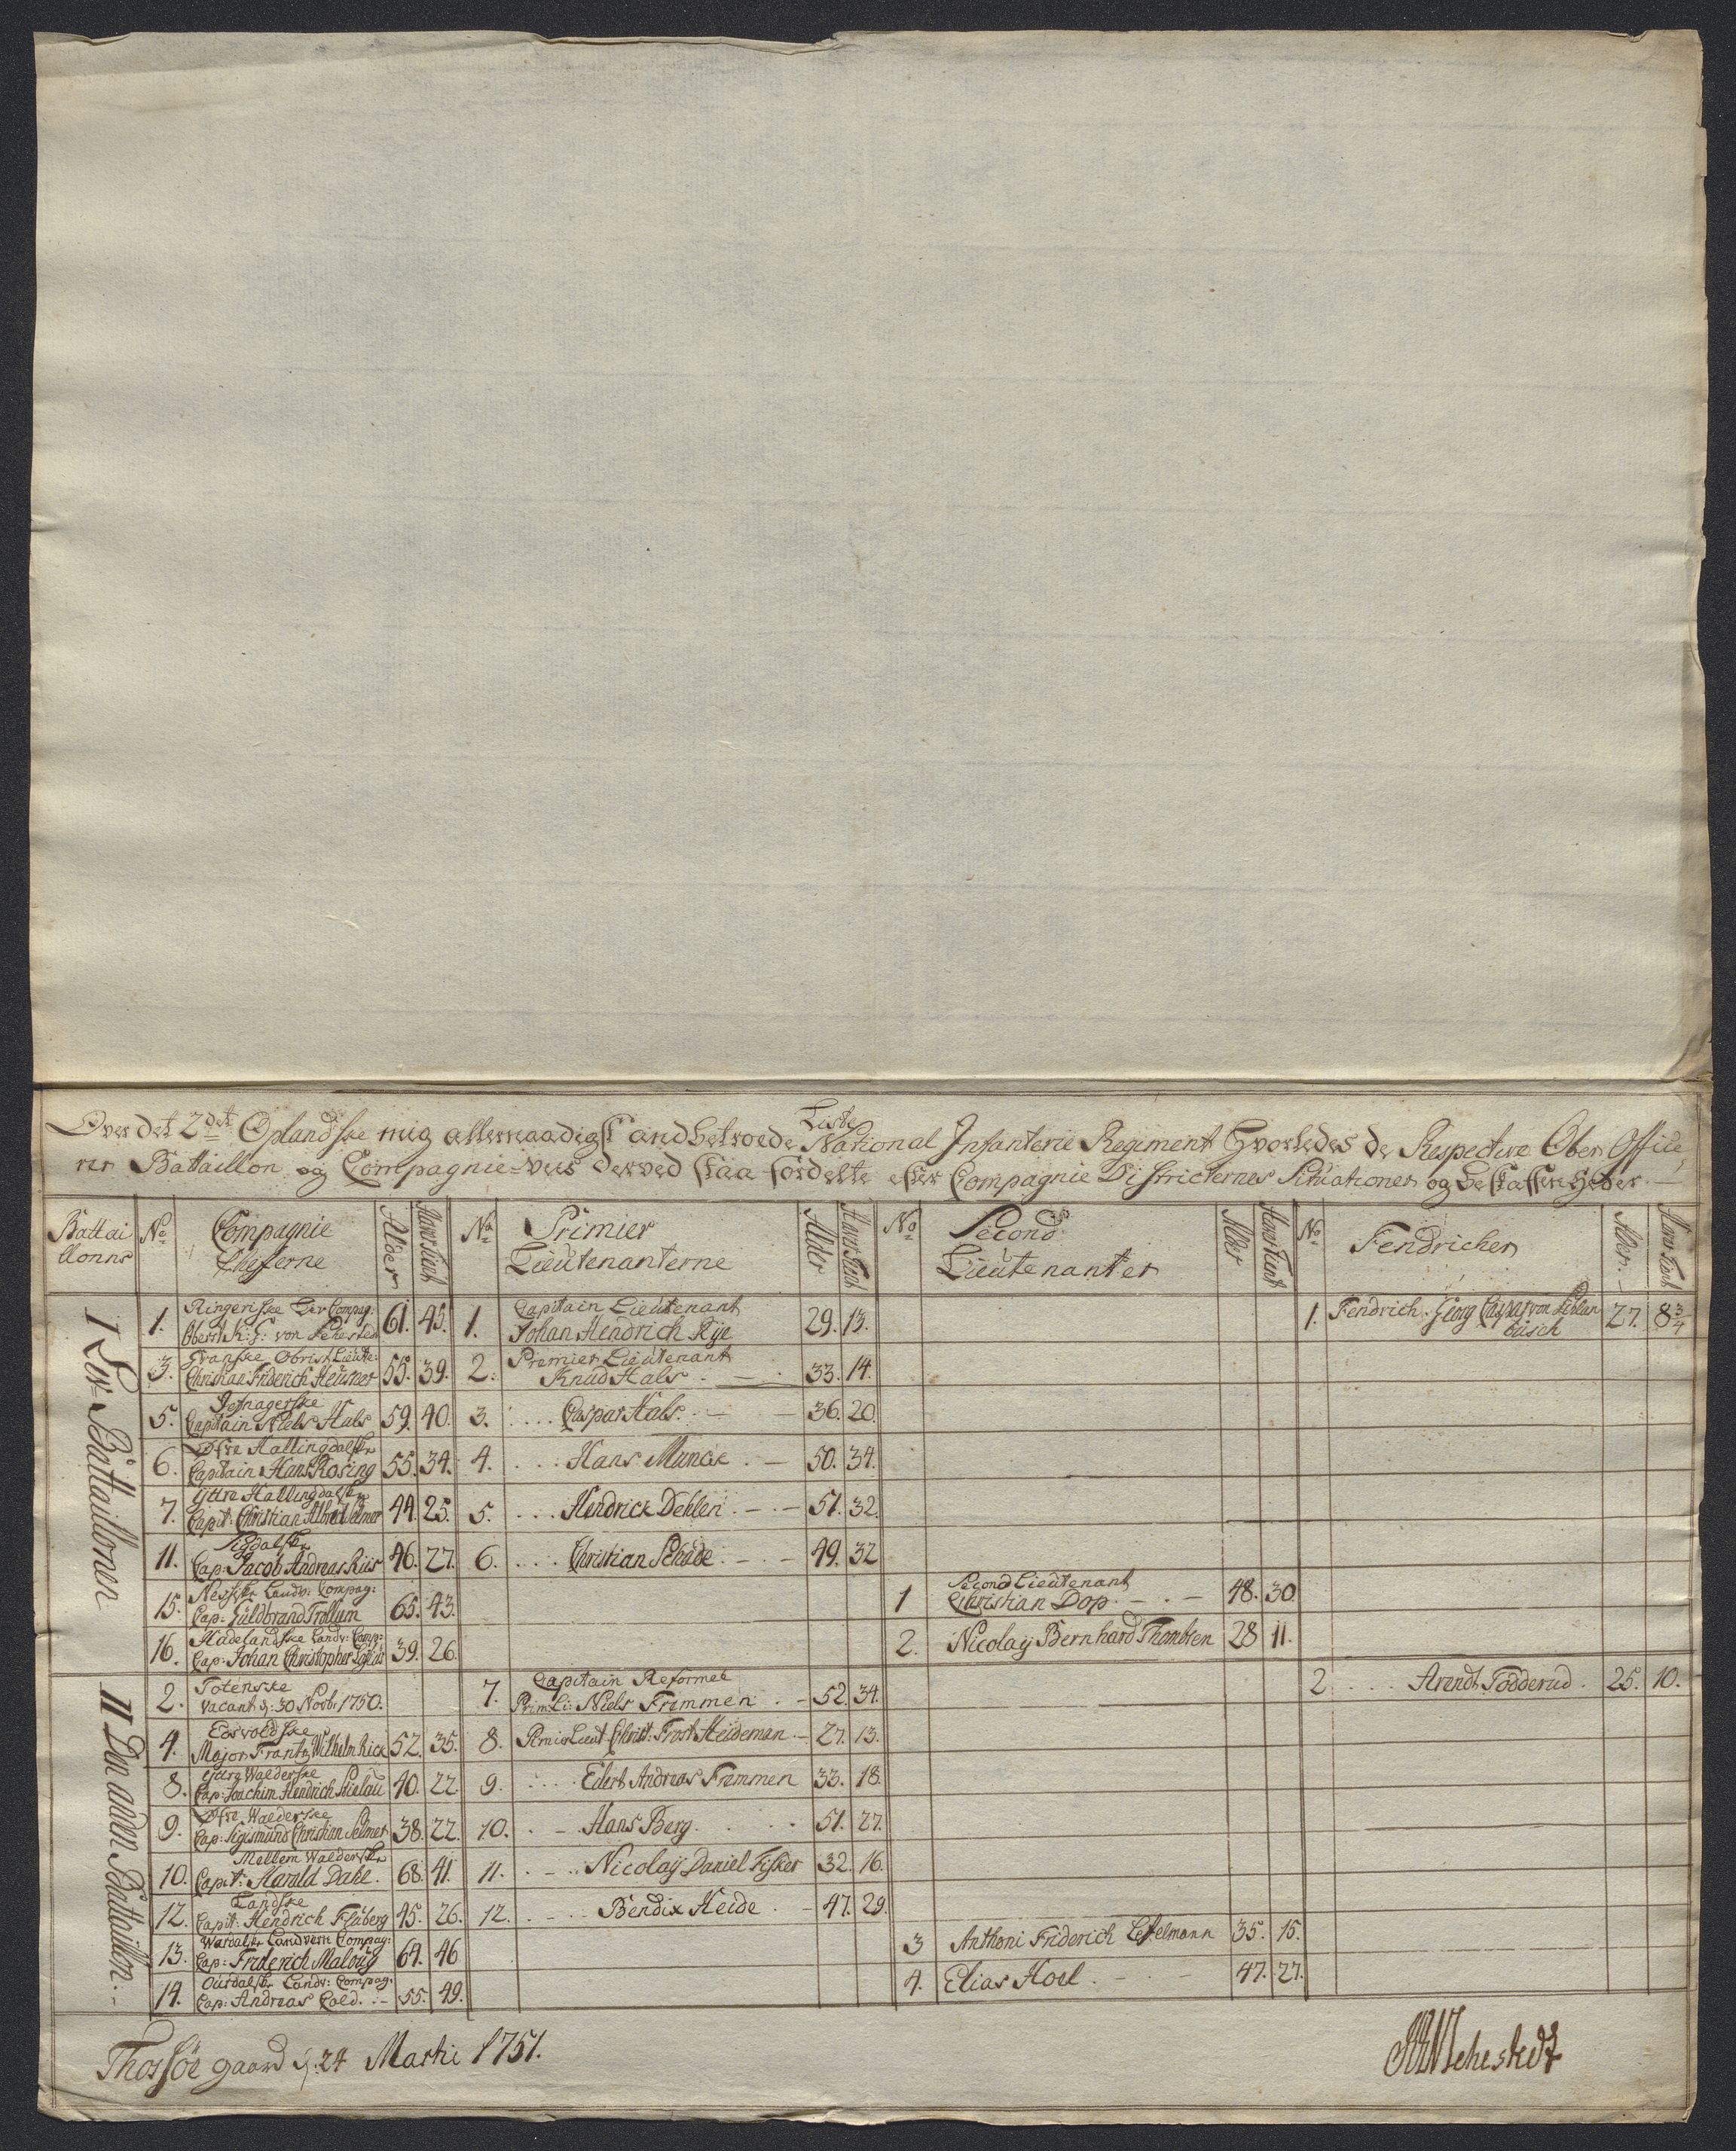 Liste
Over det 2det Oplandske mig allernaadigst anbetroede National Infanterie Regiment Hvorledes de Respective Ober Office
rer Battaillon og Compagnie-viis derved staa fordelte efter Compagnie Districternes Situationer og beskaffenheder.
Battai
llonns
No
Compagnie
Cheferne
Alder
Hans tient
No
Primier
Lieutenanterne
Alder
Hans tient
No
Second
Lieutenanter
Alder
Hans tient
No
Fendricher
Alder
Hans tient
I Ste Battaillonen
1. Ringeriske Liv Compag: 61. 45. 1. Capitain Lieutenant 29. 13. 1. Fendrich Georg Caspar von 27. 8 3/4
Oberst von Sehested Johan Hendrich Rye busch
3. Granske Obrist Lieute: 55. 39. 2. Premier Lieutenant 33. 14.
Christian Friderich Heusner Knud Hals
5. Jefnagerske 59. 40. 3. Caspar Hals 36. 20.
Capitain Niels Hals
6. Øfre Hallingdalske 55. 34. 4. Hans Munck 50. 34.
Capitain Hans Rosing
7. Yttre Hallingdalske 44. 25. 5. Hendrick Dehlen 51. 32.
Capit: Christian Albrect Selmer
11. Sigdalske 46. 27. 6. Christian Schöde 49. 32
Cap: Jacob Andreas Riis
15. Nesske Landv: Compag: 65. 43. 1 Second Lieutenant 48. 30.
Cap: Guldbrand Trollum Christian Dop
16. Hadelandske Landv: Comp: 39. 26. 2. Nicolaij Bernhard Thombsen 28 11.
Cap: Johan Christopher
II Den anden Battaillon
2. Totenske 7. Capitain Reformee 52. 34. 2. Arendt Födderud 25. 10.
vacant d: 30 Novbr 1750. Prim: Li: Niels Frimmen
4. Edsvoldske 52. 35. 8. Premier Lieut Christ: Frost Heideman 27. 13.
Major Frantz Wilhelm Rick
8. Yttre Walderske 40. 22 9. Edert Andreas Frimmen 33. 18.
Cap: Joachim Hendrich Stielau
9. Øfre Walderske 38. 22. 10. Hans Berg 51. 27.
Cap: Sigismund Christian Selmer
10. Mellem Walderske 68. 41. 11. Nicolaij Daniel Fisker 32. 16.
Capit: Harald Dahl.
12. Landske 45. 26. 12. Bendix Heide 47. 29.
Capit: Hendrich Flüberg
13. Wardalske Landvern Compag: 64. 46 3 Anthoni Friderich Leselmann 35. 15.
Cap: Friderich Maloug
14. Ourdalske Landv: Compag: 55. 49. 4. Elias Hoel 47. 27.
Cap: Andreas Cold.
Thorsöe gaard d: 24 Martii 1751.
Sehestedt